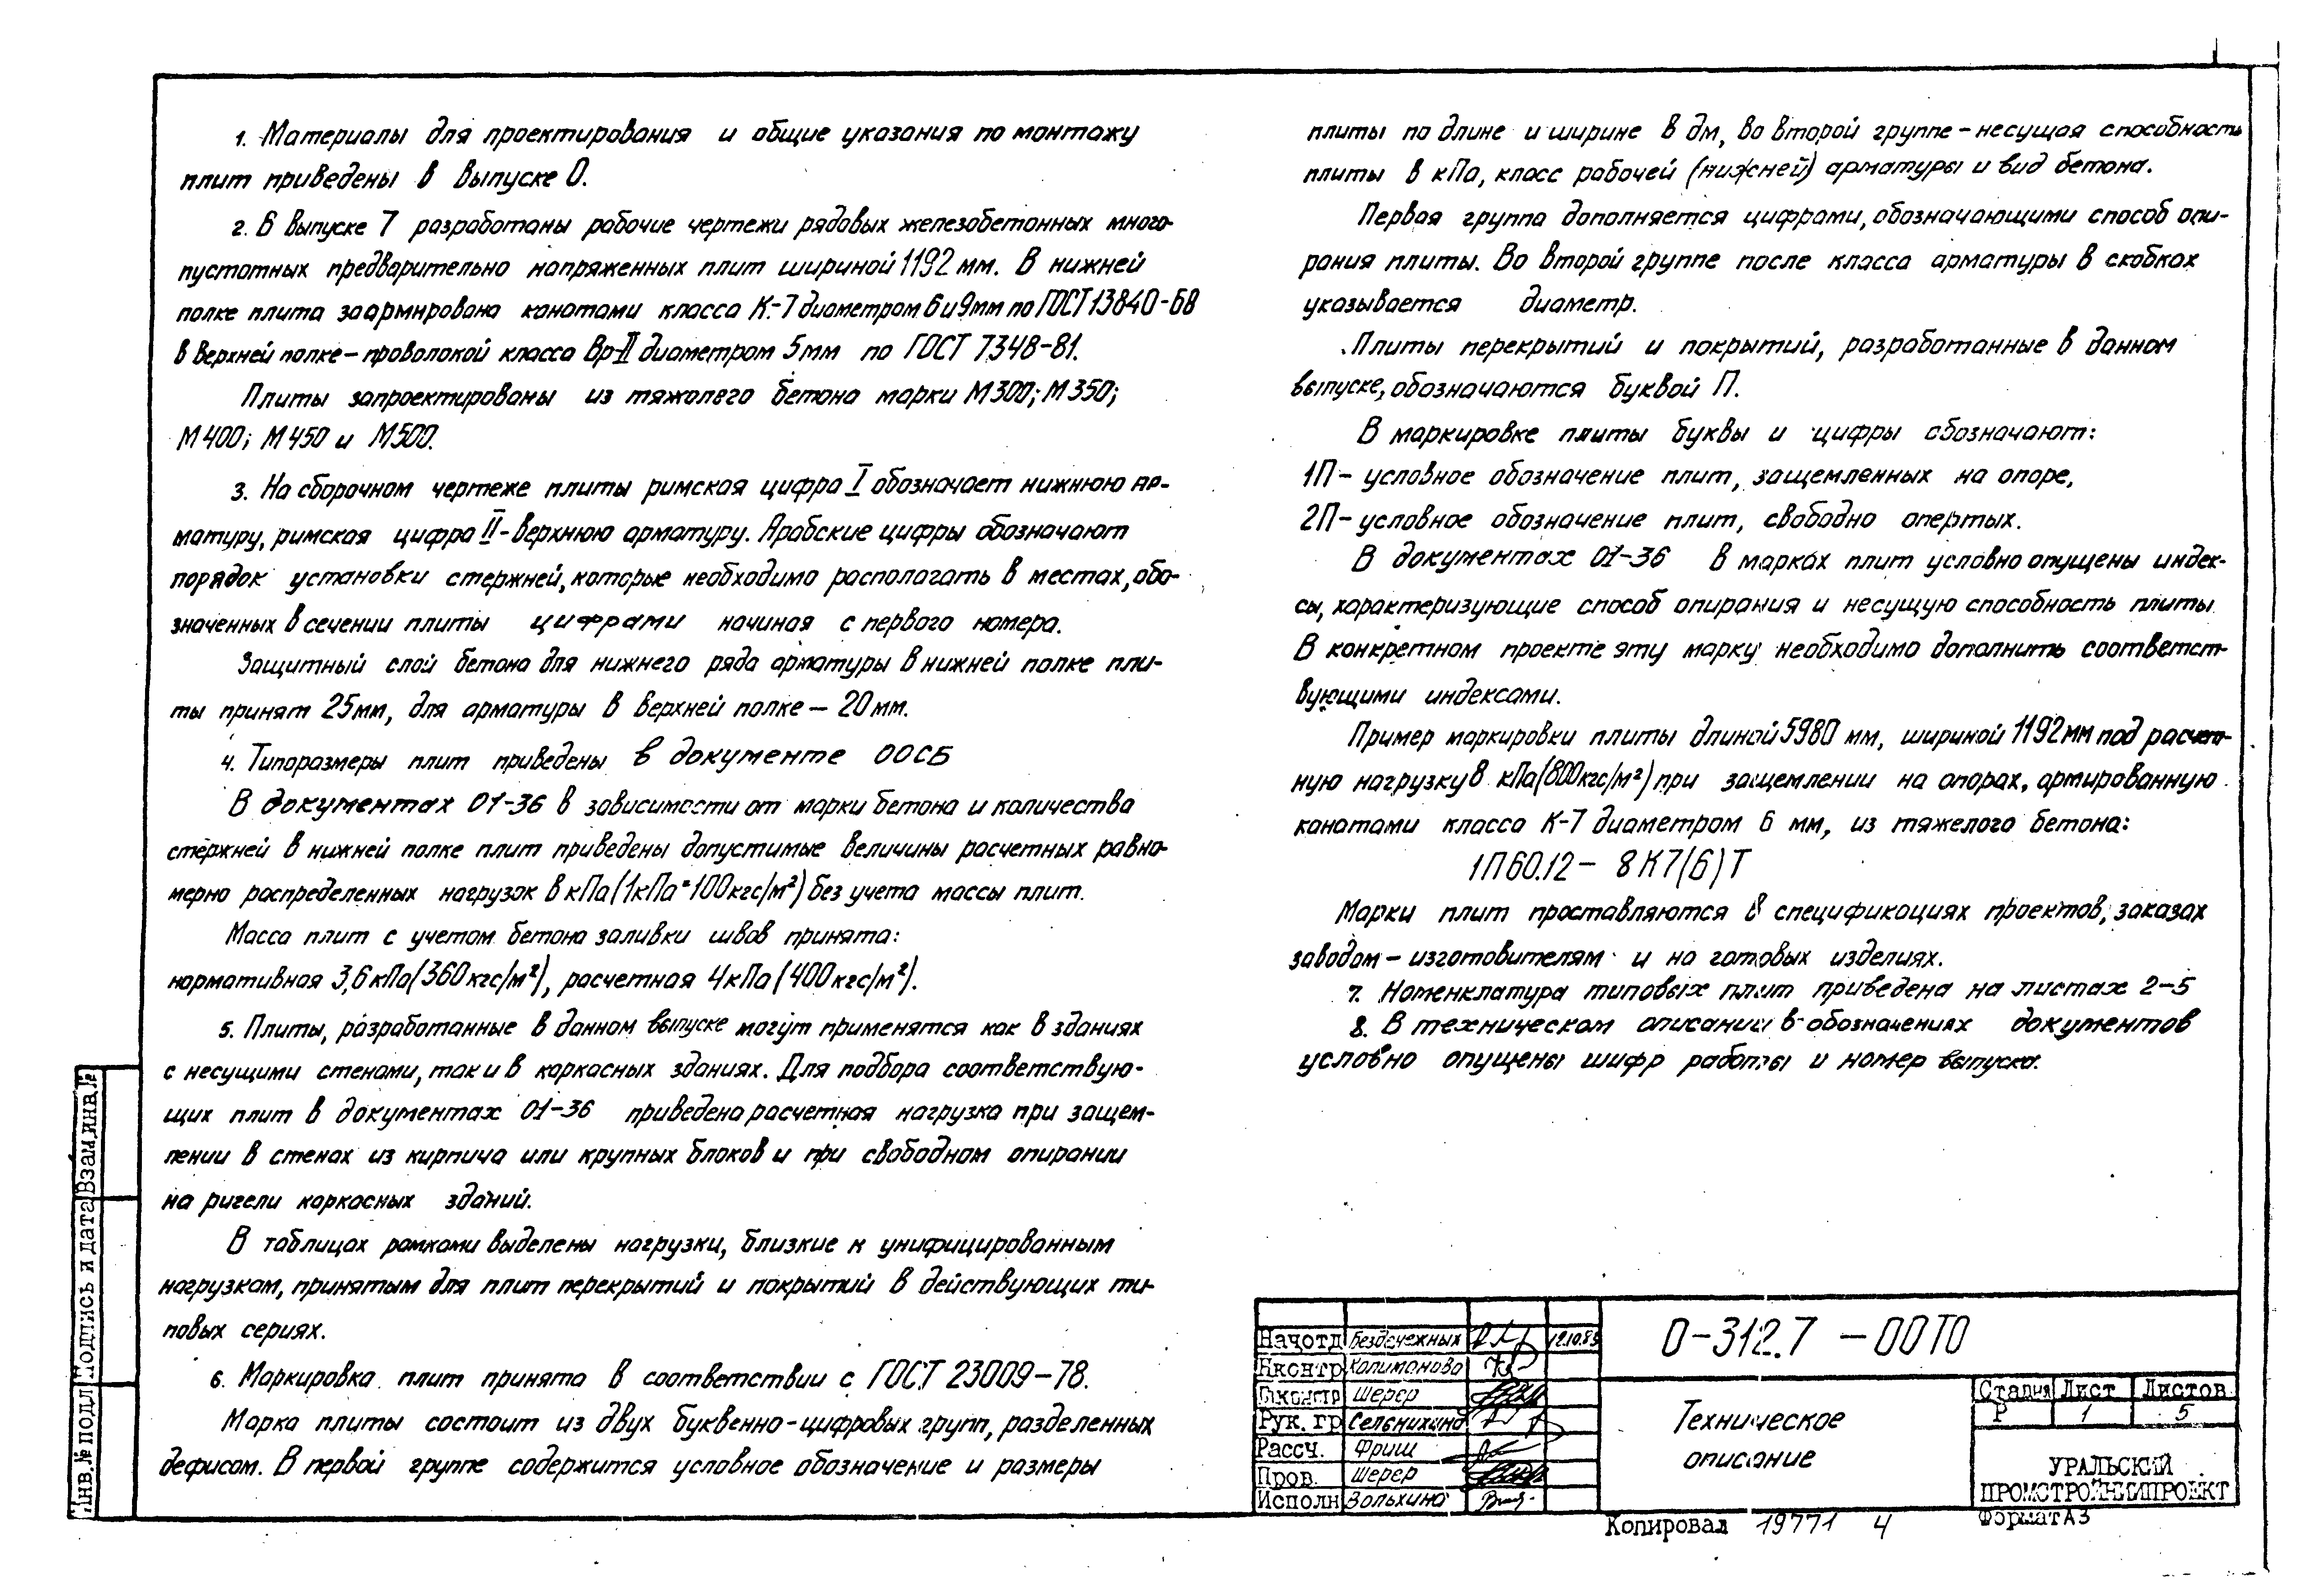 1. Материалы для проектирования и общие указания по монтажу
плит приведены в выпуске 0.
2. В выпуске 7 разработаны рабочие чертежи рядовых железобетонных много-
пустотных предварительно напряженных плит шириной 1192 мм. В нижней
полке плита заармирована канатами класса К-7 диаметром 6 и 9мм по ГОСТ 13840-68
в верхней полке – проволокой класса Вр-II диаметром 5мм по ГОСТ 7348-81.
Плиты запроектированы из тяжолего бетона марки М300; М350;
М400; М450 и М500.
3. На сборочном чертеже плиты римская цифра I обозначает нижнюю ар-
матуру, римская цифра II - верхнюю арматуру. Арабские цифры обозначают
порядок установки стержней, которые необходимо располагать в местах, обо-
значенных в сечении плиты цифрами начиная с первого номера.
Защитный слой бетона для нижнего ряда арматуры в нижней полке пли-
ты принят 25мм, для арматуры в верхней полке – 20мм.
4. Типоразмеры плит приведены в документе 00СБ
В документах 01-36 в зависимости от марки бетона и количества
стержней в нижней полке плит приведены допустимые величины расчетных равно-
мерно распределенных нагрузок в кПа (1кПа=100кгс/м²) без учета массы плит.
Масса плит с учетом бетона заливки швов принята:
нормативная 3,6 кПа (360 кгс/м²), расчетная 4 кПа (400 кгс/м²).
5. Плиты, разработанные в данном выпуске могут применятся как в зданиях
с несущими стенами, так и в каркасных зданиях. Для подбора соответствую-
щих плит в документах 01-36 приведена расчетная нагрузка при защем-
лении в стенах из кирпича или крупных блоков и при свободном опирании
на ригели каркасных зданий.
В таблицах рамками выделены нагрузки, близкие к унифицированным
нагрузкам, принятым для плит перекрытий и покрытий в действующих ти-
повых сериях.
6. Маркировка плит принята в соответствии с ГОСТ 23009-78.
Марка плиты состоит из двух буквенно-цифровых групп, разделенных
дефисом. В первой группе содержится условное обозначение и размеры
плиты по длине и ширине в дм, во второй группе – несущая способность
плиты в кПа, класс рабочей (нижней) арматуры и вид бетона.
Первая группа дополняется цифрами, обозначающими способ опи-
рания плиты. Во второй группе после класса арматуры в скобках
указывается диаметр.
Плиты перекрытий и покрытий, разработанные в данном
выпуске, обозначаются буквой П.
В маркировке плиты буквы и цифры обозначают:
1П – условное обозначение плит, защемленных на опоре,
2П – условное обозначение плит, свободно опертых.
В документах 01-36 в марках плит условно опущены индек-
сы, характеризующие способ опирания и несущую способность плиты.
В конкретном проекте эту марку необходимо дополнить соответст-
вующими индексами.
Пример маркировки плиты длиной 5980 мм, шириной 1192 мм под расчет-
ную нагрузку 8 кПа (800кгс/м²) при защемлении на опорах, армированную
канатами класса К-7 диаметром 6 мм, из тяжелого бетона:
1П60.12 – 8К7(6)Т
Марки плит проставляются в спецификациях проектов, заказах
заводам – изготовителям и на готовых изделиях.
7. Номенклатура типовых плит приведена на листах 2-5
8. В техническом описании в обозначениях документов
условно опущены шифр работы и номер выпуска.
Взам.инв.№
Подпись и дата
Инв.№ подл
Нач.отд Безденежных 12.10.83
Н.контр Калиманова
Гл.констр Шерер
Рук. гр Сельнихина
Рассч. Фриш
Пров. Шерер
Исполн Вольхина
0-312.7 – 00ТО
Техническое
описание
Стадия Лист Листов
Р 1 5
УРАЛЬСКИЙ
ПРОМСТРОЙНИИПРОЕКТ
Копировал 19771 4
Формат А3